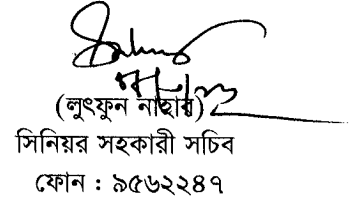 (লুৎফুন নাহার)
সিনিয়র সহকারী সচিব
ফোন : ৯৫৬২২৪৭